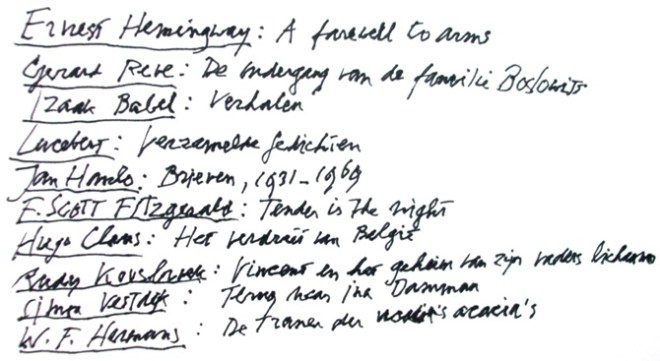 Ernest Hemingway: A farewell to arms
Gerard Reve: De ondergang van de familie Boslowits
Izaak Babel: Verhalen
Lucebert: Verzamelde gedichten
Jan Hanlo: Brieven, 1931-1969
F. Scott Fitzgerald: Tender is the night
Hugo Claus: Het verdriet van België
Rudy Kousbroek: Vincent en het geheim van zijn vaders lichaam
Simon Vestdijk: Terug naar Ina Damman
W. F. Hermans: De tranen der acacia's